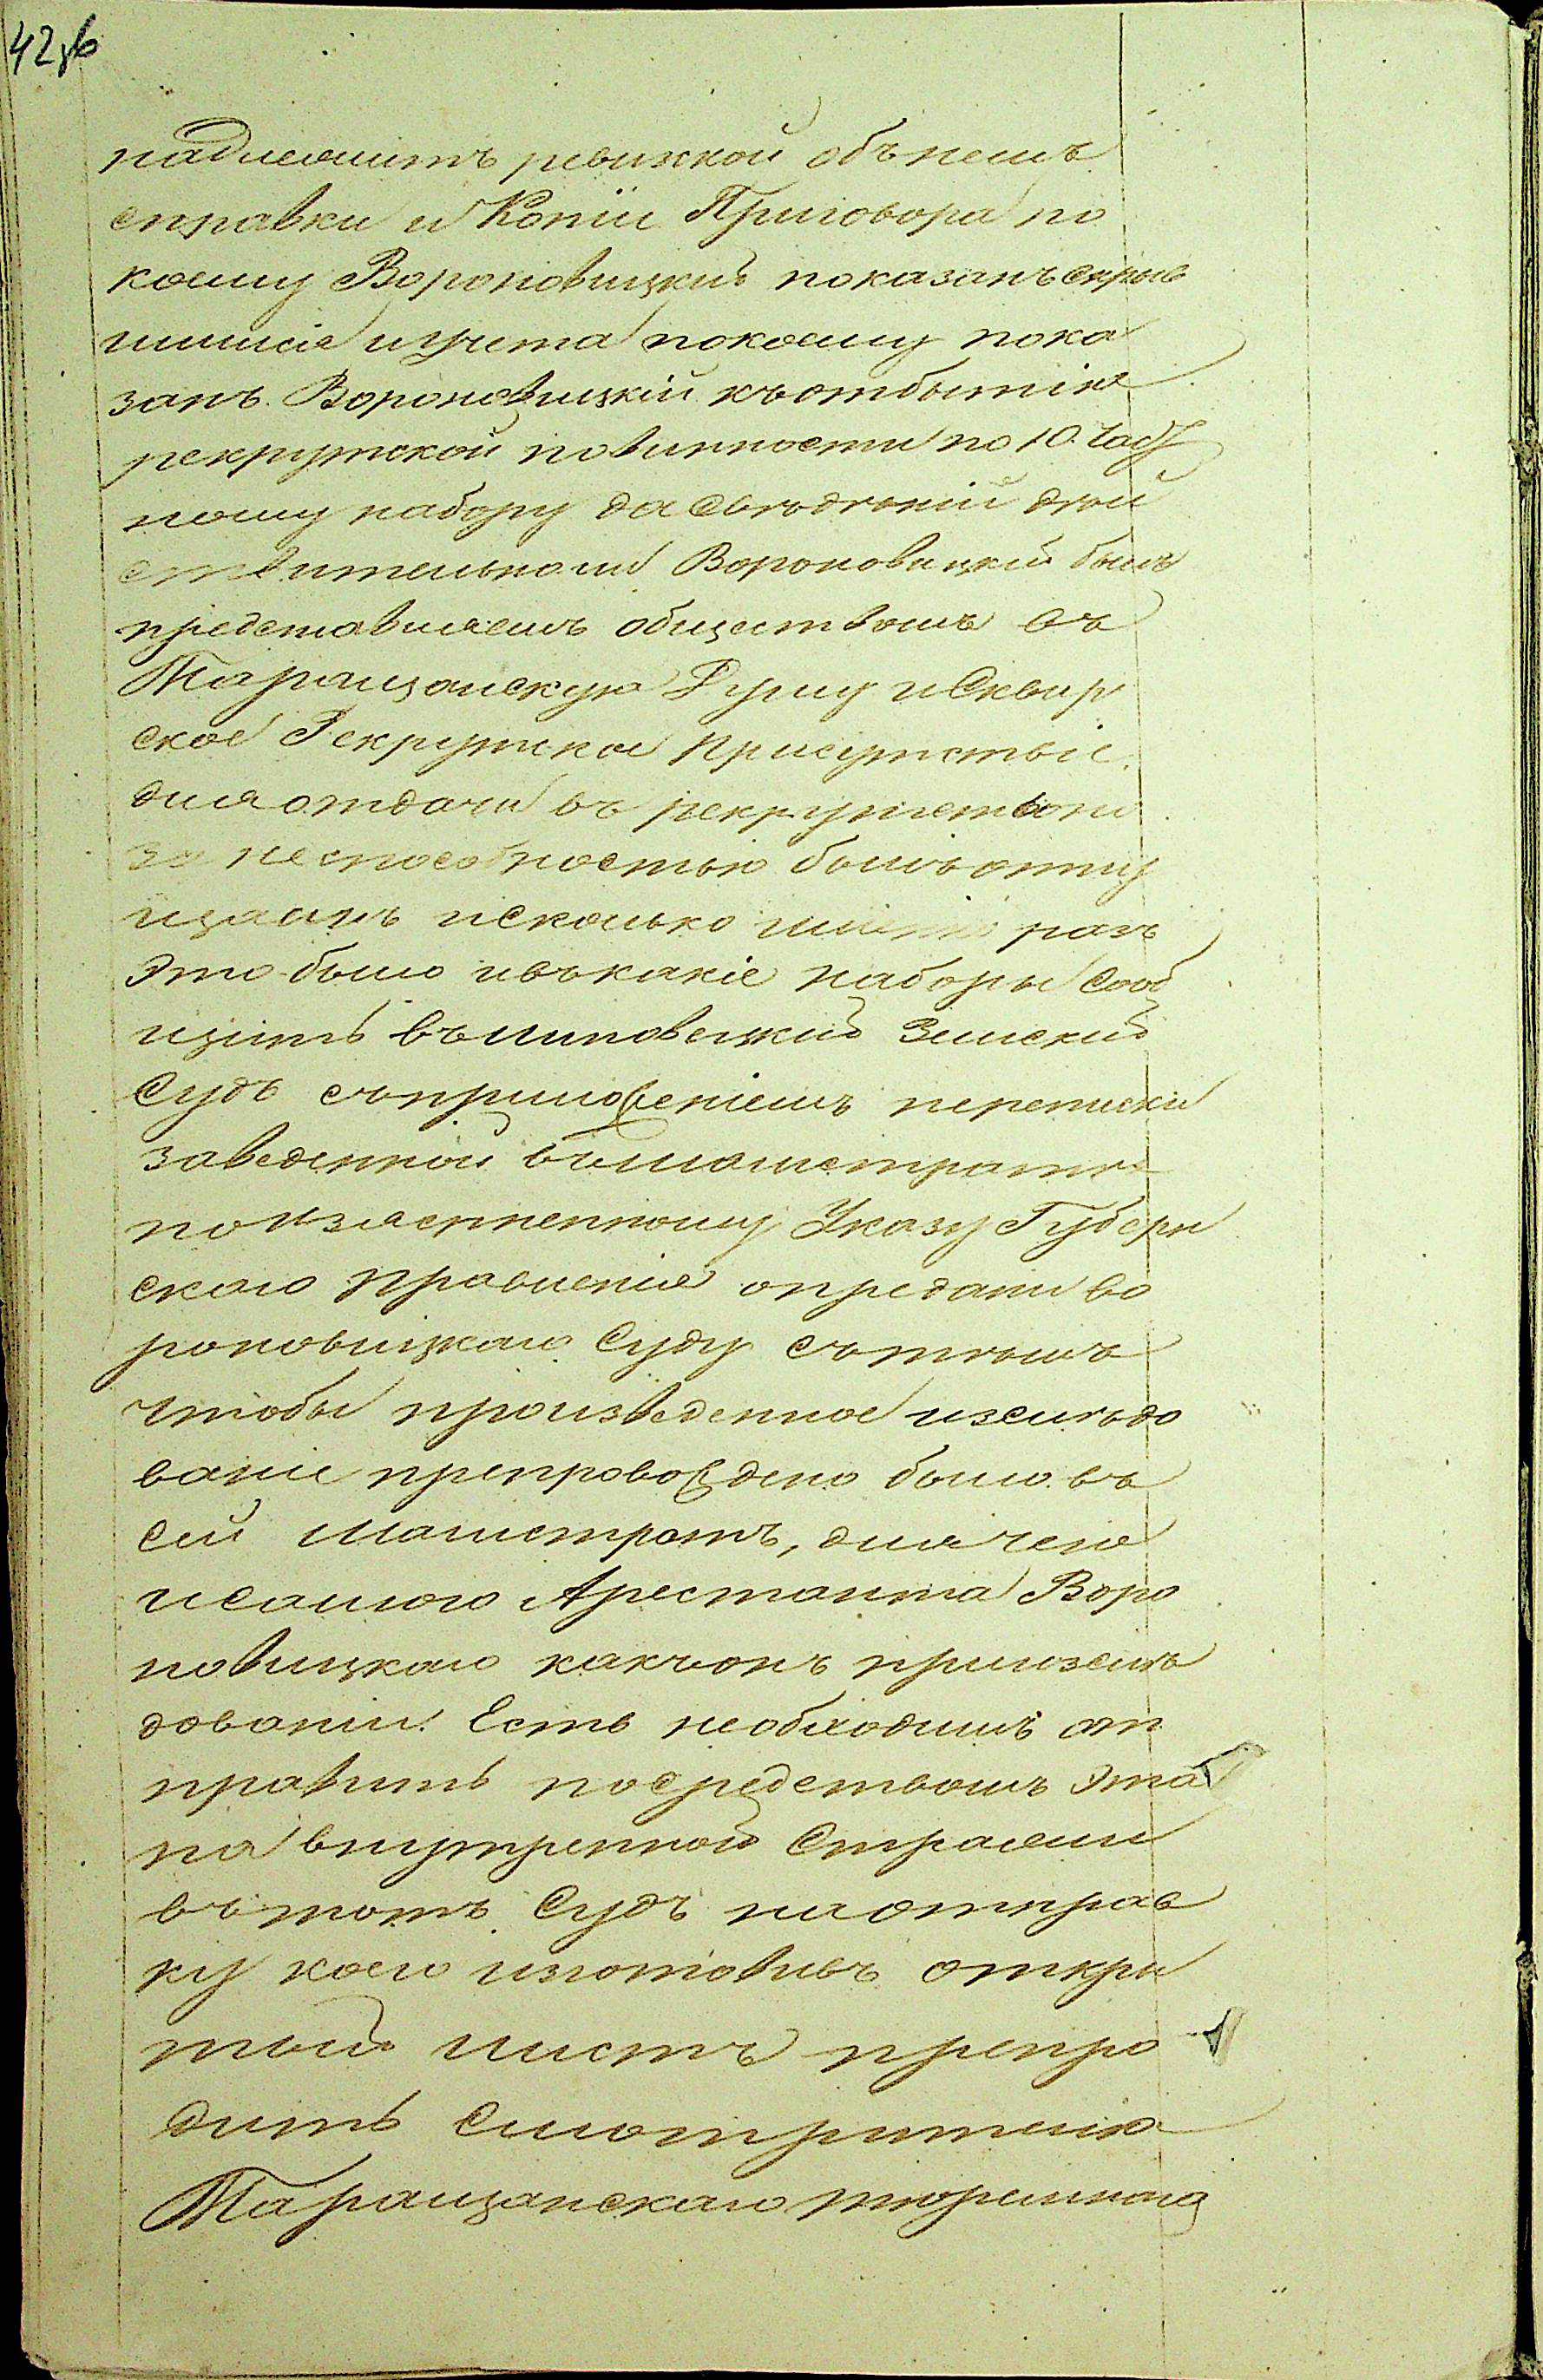 42об
надлежитъ ревизкой объ немъ
справки и Копіи Приговора по
коему Вороновицкій показанъ скрыв
шимся и учета по коему пока
занъ Вороновицкій къ отбытію
рекрутской повинности по 10. част
ному набору да Свѣдѣній дѣй
ствительноли Вороновицкій былъ
представляемъ обществомъ въ
Таращанскую Думу и Сквир
ское Рекрутское Присутствіе
для отдачи въ рекруты и
за неспособностью былъ отпу
щаемъ и сколько разъ
Это было и въ какіе наборы Сооб
щить въ Липовецкій Земскій
Судъ съ приложеніемъ переписки
заведенной въ Магистратѣ
по изъясненному Указу Губерн
скаго Правленія о предани Во
роновицкаго Суду съ тѣмъ
чтобы произведенное изслѣдо
ваніе препровождено было въ
сей Магистратъ, для чего
и самого Арестанта Воро
новицкаго какъ онъ при изслѣ
дованіи Есть необходимъ от
править посредствомъ Эта
па внутренной Стражи
въ тотъ Судъ на отправ
ку коего изготовивъ откры
тый листъ препро
дить Смотрителю
Таращанскаго тюремнаго